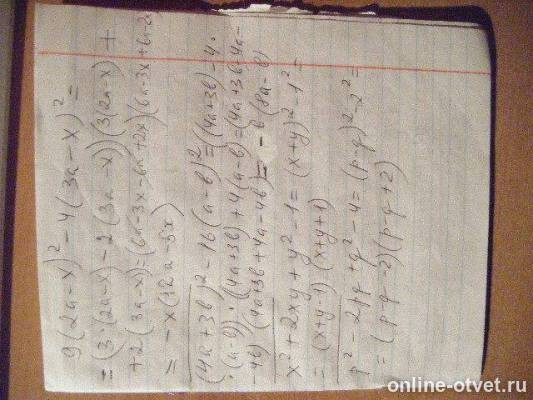 9(2a-x)² - 4(3a-x)² =
= (3·(2a-x) - 2(3a-x))(3(2a-x) +
+ 2(3a-x) = (6a-3x-6a+2x)(6a-3x+6a-2x
= -x(12a-5x)
(4a+3b)² - 16(a-b)² = ((4a+3b) - 4·
·(a-b))·((4a+3b)+4(a-b) = (4a+3b-4a-
-4b)(4a+3b+4a-4b) = -b(8a-b)
x²+2xy+y²-1 = (x+y)²-1² =
= (x+y-1)(x+y+1)
p²-2pq+q²-4 = (p-q)²-2² =
= (p-q-2)(p-q+2)
online-otvet.ru